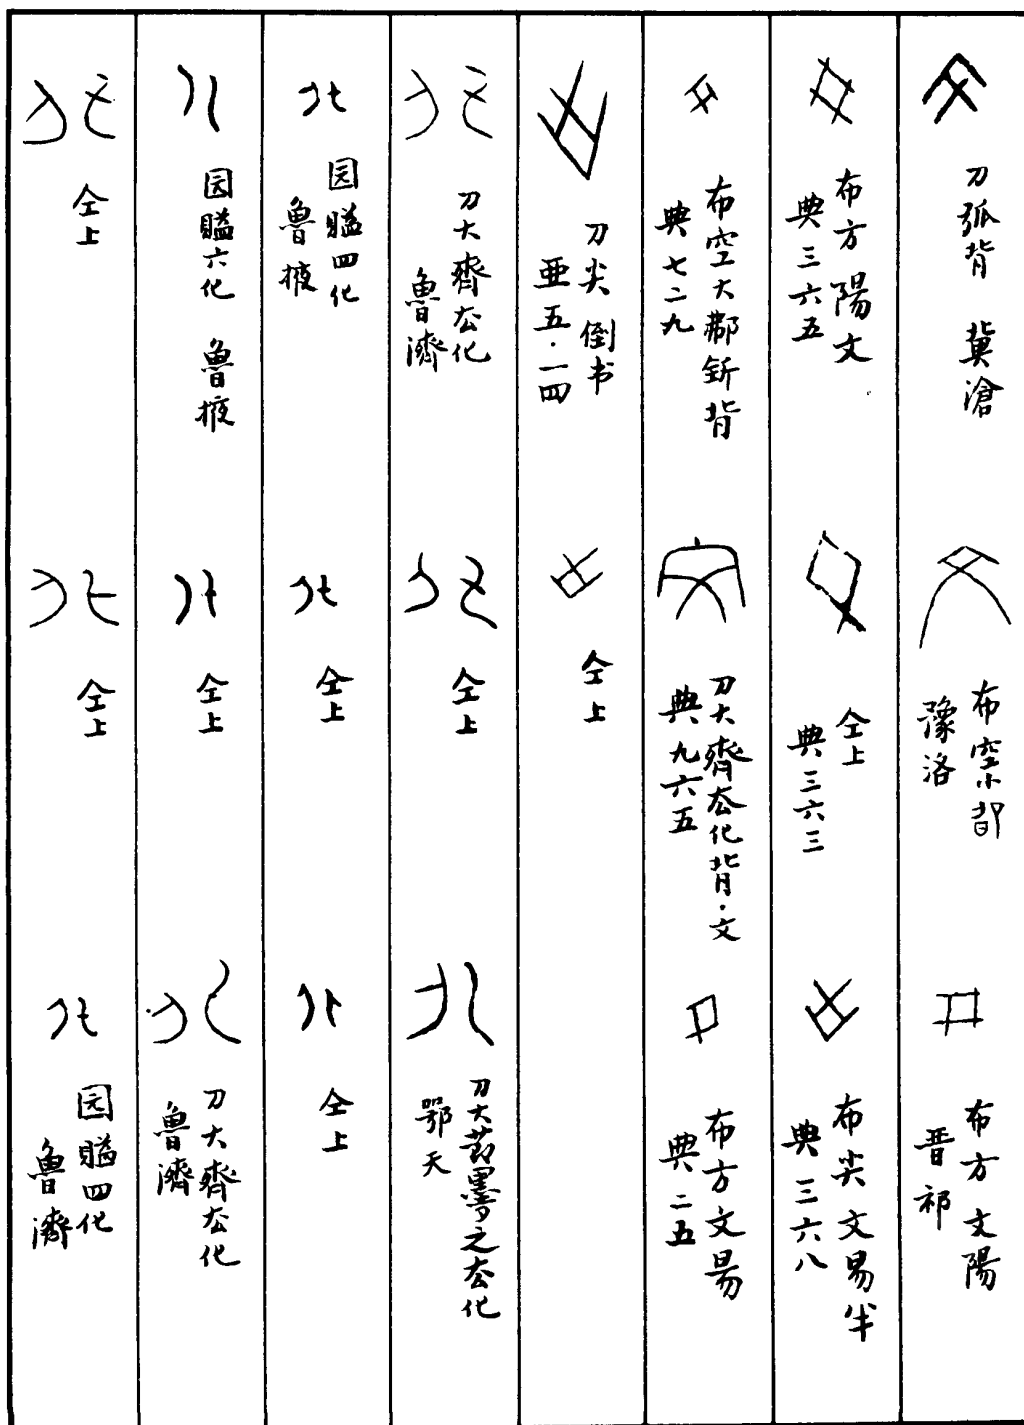 刀弧背 冀滄
布空小部
豫洛
布方文陽
晋祁
布方陽文
典三六五
仝上
典三六三
布尖文易半
典三六八
布空大鄘釿背
典七二九
刀大齊厺化背·文
典九六五
布方文昜
典二五
刀尖倒书
亜五·一四
仝上
刀大齊厺化
魯濟
仝上
刀大莭墨之厺化
鄂天
园賹四化
魯掖
仝上
仝上
园賹六化 魯掖
仝上
刀大齊厺化
魯濟
仝上
仝上
园賹四化
魯濟